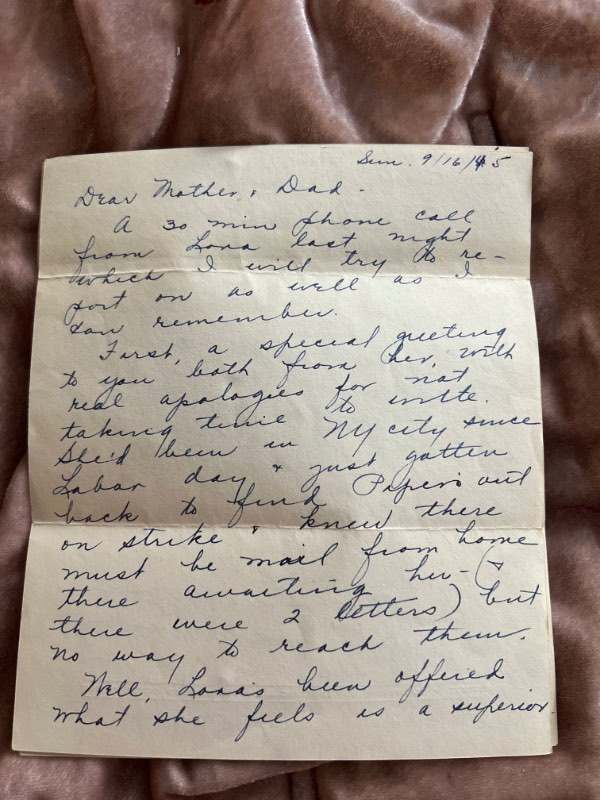 Sun. 9/16/45
Dear Mother & Dad -
A 30 min phone call
from Lora last night
which I will try to re-
port on as well as I
can remember.
First, a special greeting
to you both from her, with
real apologies for not
taking time to write.
She'd been in NY city since
Labor day & just gotten
back to find Pipers out
on strike & knew there
must be mail from home
there awaiting her - (&
there were 2 letters) but
no way to reach them.
Well, Lora's been offered
what she feels is a superior